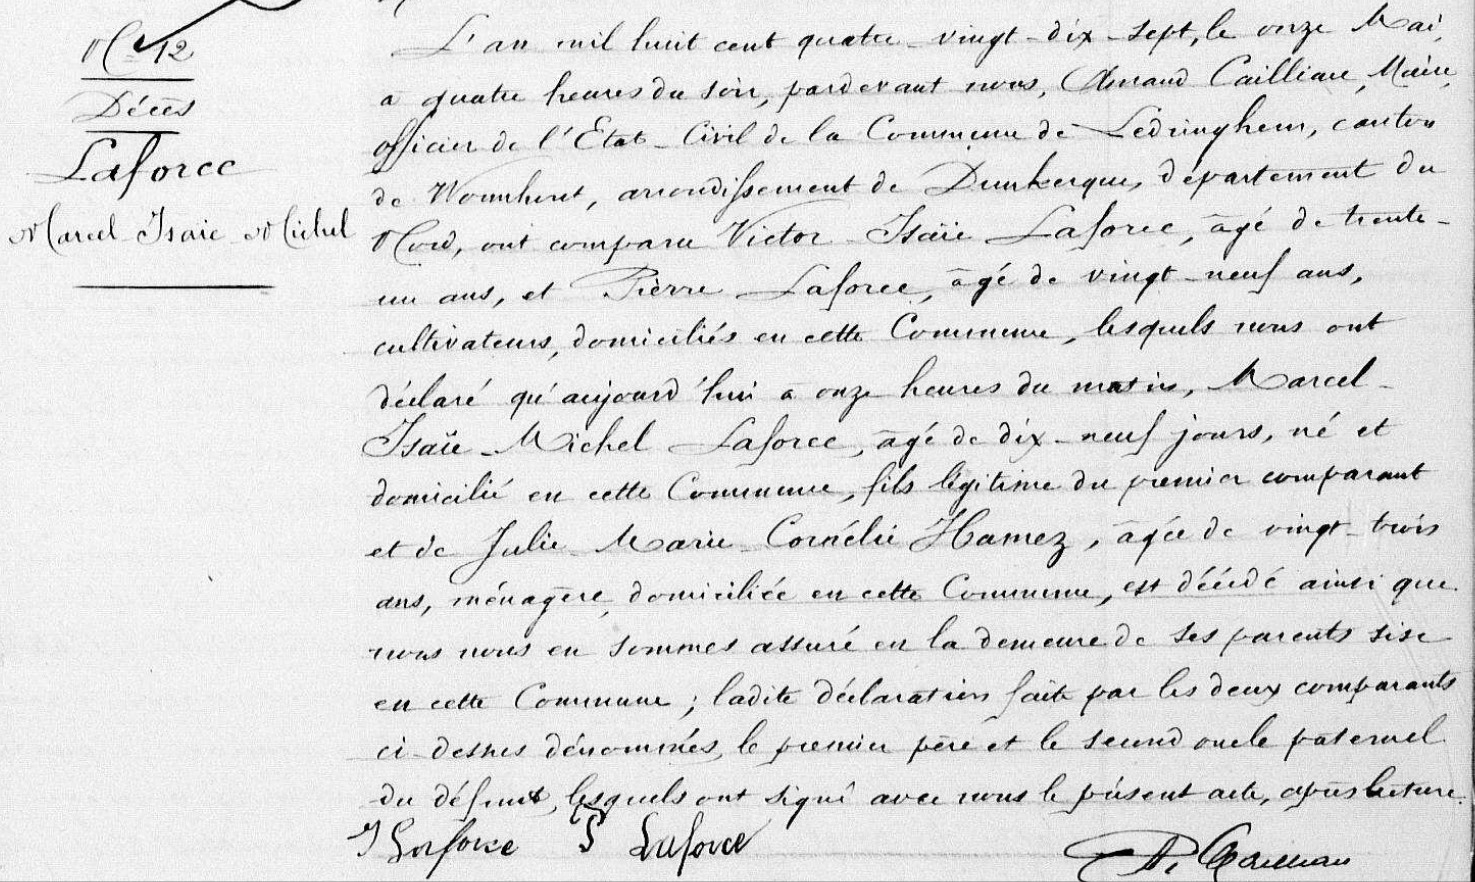 N° 12
Décès
Laforce
Marcel Isaïe Michel
L'an mil huit cent quatre-vingt-dix-sept, le onze Mai,
à quatre heures du soir, pardevant nous, Amand Cailliau, Maire,
officier de l'Etat-Civil de la Commune de Ledringhem, canton
de Wormhout, arrondissement de Dunkerque, département du
Nord, ont comparu Victor Isaïe Laforce, âgé de trente-
un ans, et Pierre Laforce, âgé de vingt-neuf ans,
cultivateurs, domiciliés en cette Commune, lesquels nous ont
déclaré qu'aujourd'hui à onze heures du matin, Marcel-
Isaïe-Michel Laforce, âgé de dix-neuf jours, né et
domicilié en cette Commune, fils légitime du premier comparant
et de Julie-Marie-Cornélie Hamez, âgée de vingt-trois
ans, ménagère, domiciliée en cette Commune, est décédé ainsi que
nous nous en sommes assuré en la demeure de ses parents sise
en cette Commune ; ladite déclaration faite par les deux comparants
ci-dessus dénommés, le premier père et le second oncle paternel
du défunt, lesquels ont signé avec nous le présent acte, après lecture.
I Laforce P Laforce A. Cailliau